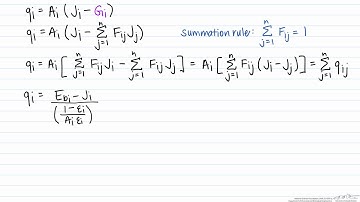 qi = Ai (Ji - Gi)
qi = Ai (Ji - n∑j=1 Fij Jj)
summation rule: n∑j=1 Fij = 1
qi = Ai [ n∑j=1 Fij Ji - n∑j=1 Fij Jj ] = Ai [ n∑j=1 Fij (Ji - Jj) ] = n∑j=1 qij
qi = Ebi - Ji / ( 1 - εi / Ai εi )